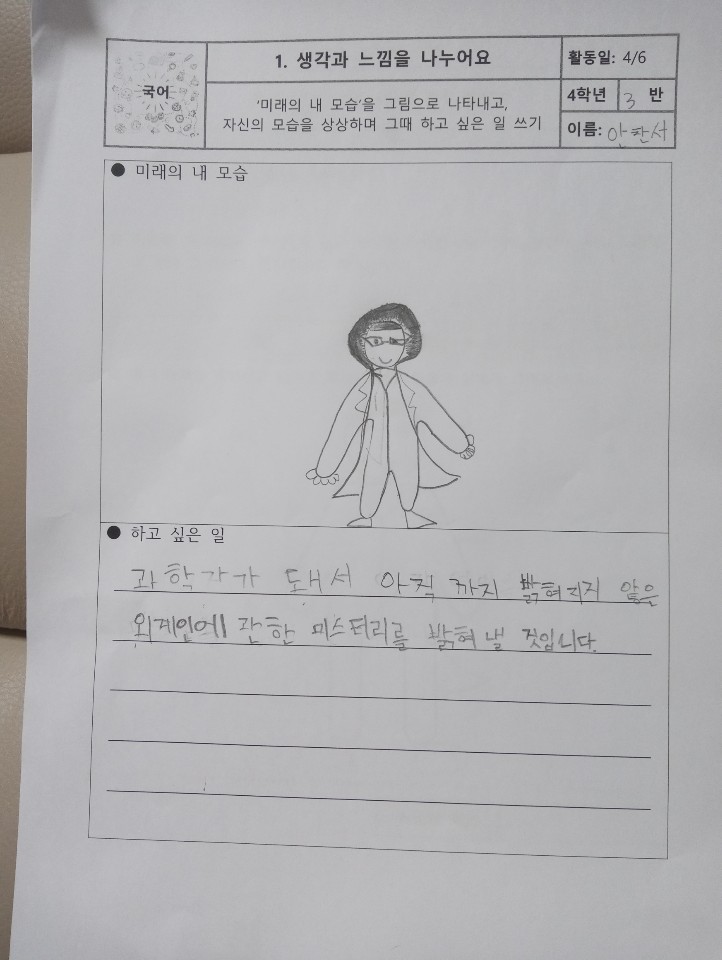 국어
1. 생각과 느낌을 나누어요
활동일: 4/6
'미래의 내 모습'을 그림으로 나타내고,
자신의 모습을 상상하며 그때 하고 싶은 일 쓰기
4학년 3 반
이름: 안찬서
● 미래의 내 모습
● 하고 싶은 일
과학자가 돼서 아직 까지 밝혀지지 않은
외계인에 관한 미스터리를 밝혀 낼 것입니다.